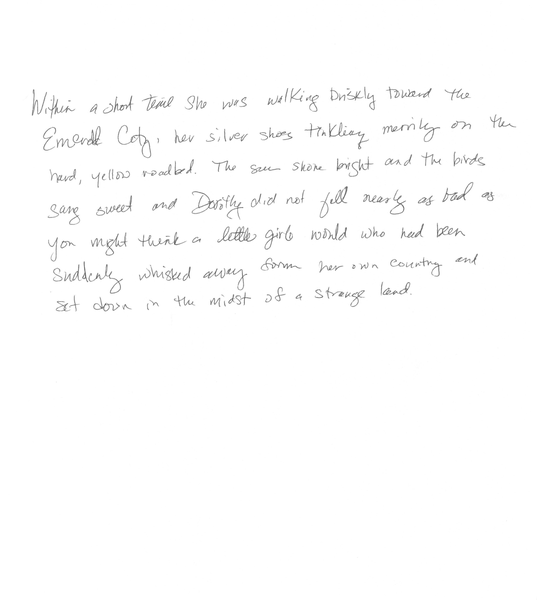 Within a short time she was walking briskly toward the
Emerald City, her silver shoes tinkling merrily on the
hard, yellow roadbed. The sun shone bright and the birds
sang sweet and Dorothy did not fell nearly as bad as
you might think a little girls would who had been
suddenly whisked away form her own country and
set down in the midst of a strange land.